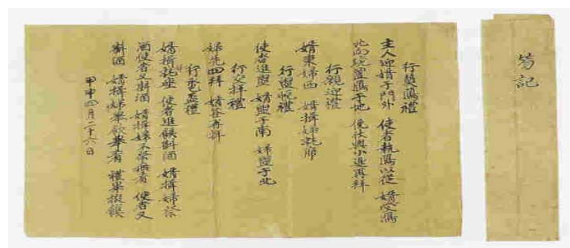 笏記
行奠鴈禮
主人迎婿于門外 使者執鴈以從 婿受鴈
北向跪置鴈于地 俛伏興小退再拜
行親迎禮
婿東婦西 婿揖婦就席
行盥 禮
使者進盥 婿盥于南 婦盥于北
行交拜禮
婦先四拜 婿答再拜
行 禮
婿揖就座 使者進饌斟酒 婿揖婦祭
酒 使者又斟酒 婿揖婦不祭無肴 使者又
斟酒 婿揖婦 肴 禮畢撤饌
甲申四月二十六日